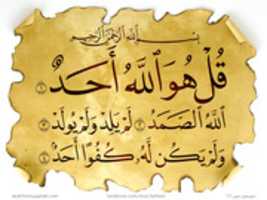 بسم الله الرحمن الرحيم
قُلْ هُوَ ٱللَّهُ أَحَدٌ ١
ٱللَّهُ ٱلصَّمَدُ ٢ لَمْ يَلِدْ وَلَمْ يُولَدْ ٣
وَلَمْ يَكُن لَّهُۥ كُفُوًا أَحَدٌۢ ٤